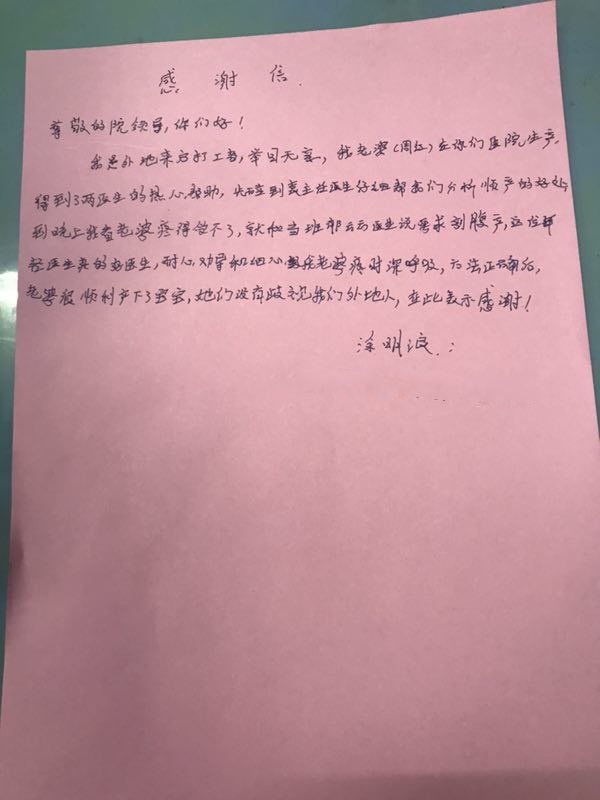 感谢信
尊敬的院领导，你们好！
我是外地来启打工者，举目无亲，我老婆（周红）在你们医院生产，
得到了两医生的热心帮助，先碰到袁主任医生仔细帮我们分析顺产的好处，
到晚上我看老婆疼得受不了，就和当班郁云云医生说要求剖腹产，应该
轻医生真的好医生，耐心劝导和细心老婆疼时深呼吸，方法正确后，
老婆很顺利产下了宝宝，她们没有歧视我们外地人，在此表示感谢！
涂明浪